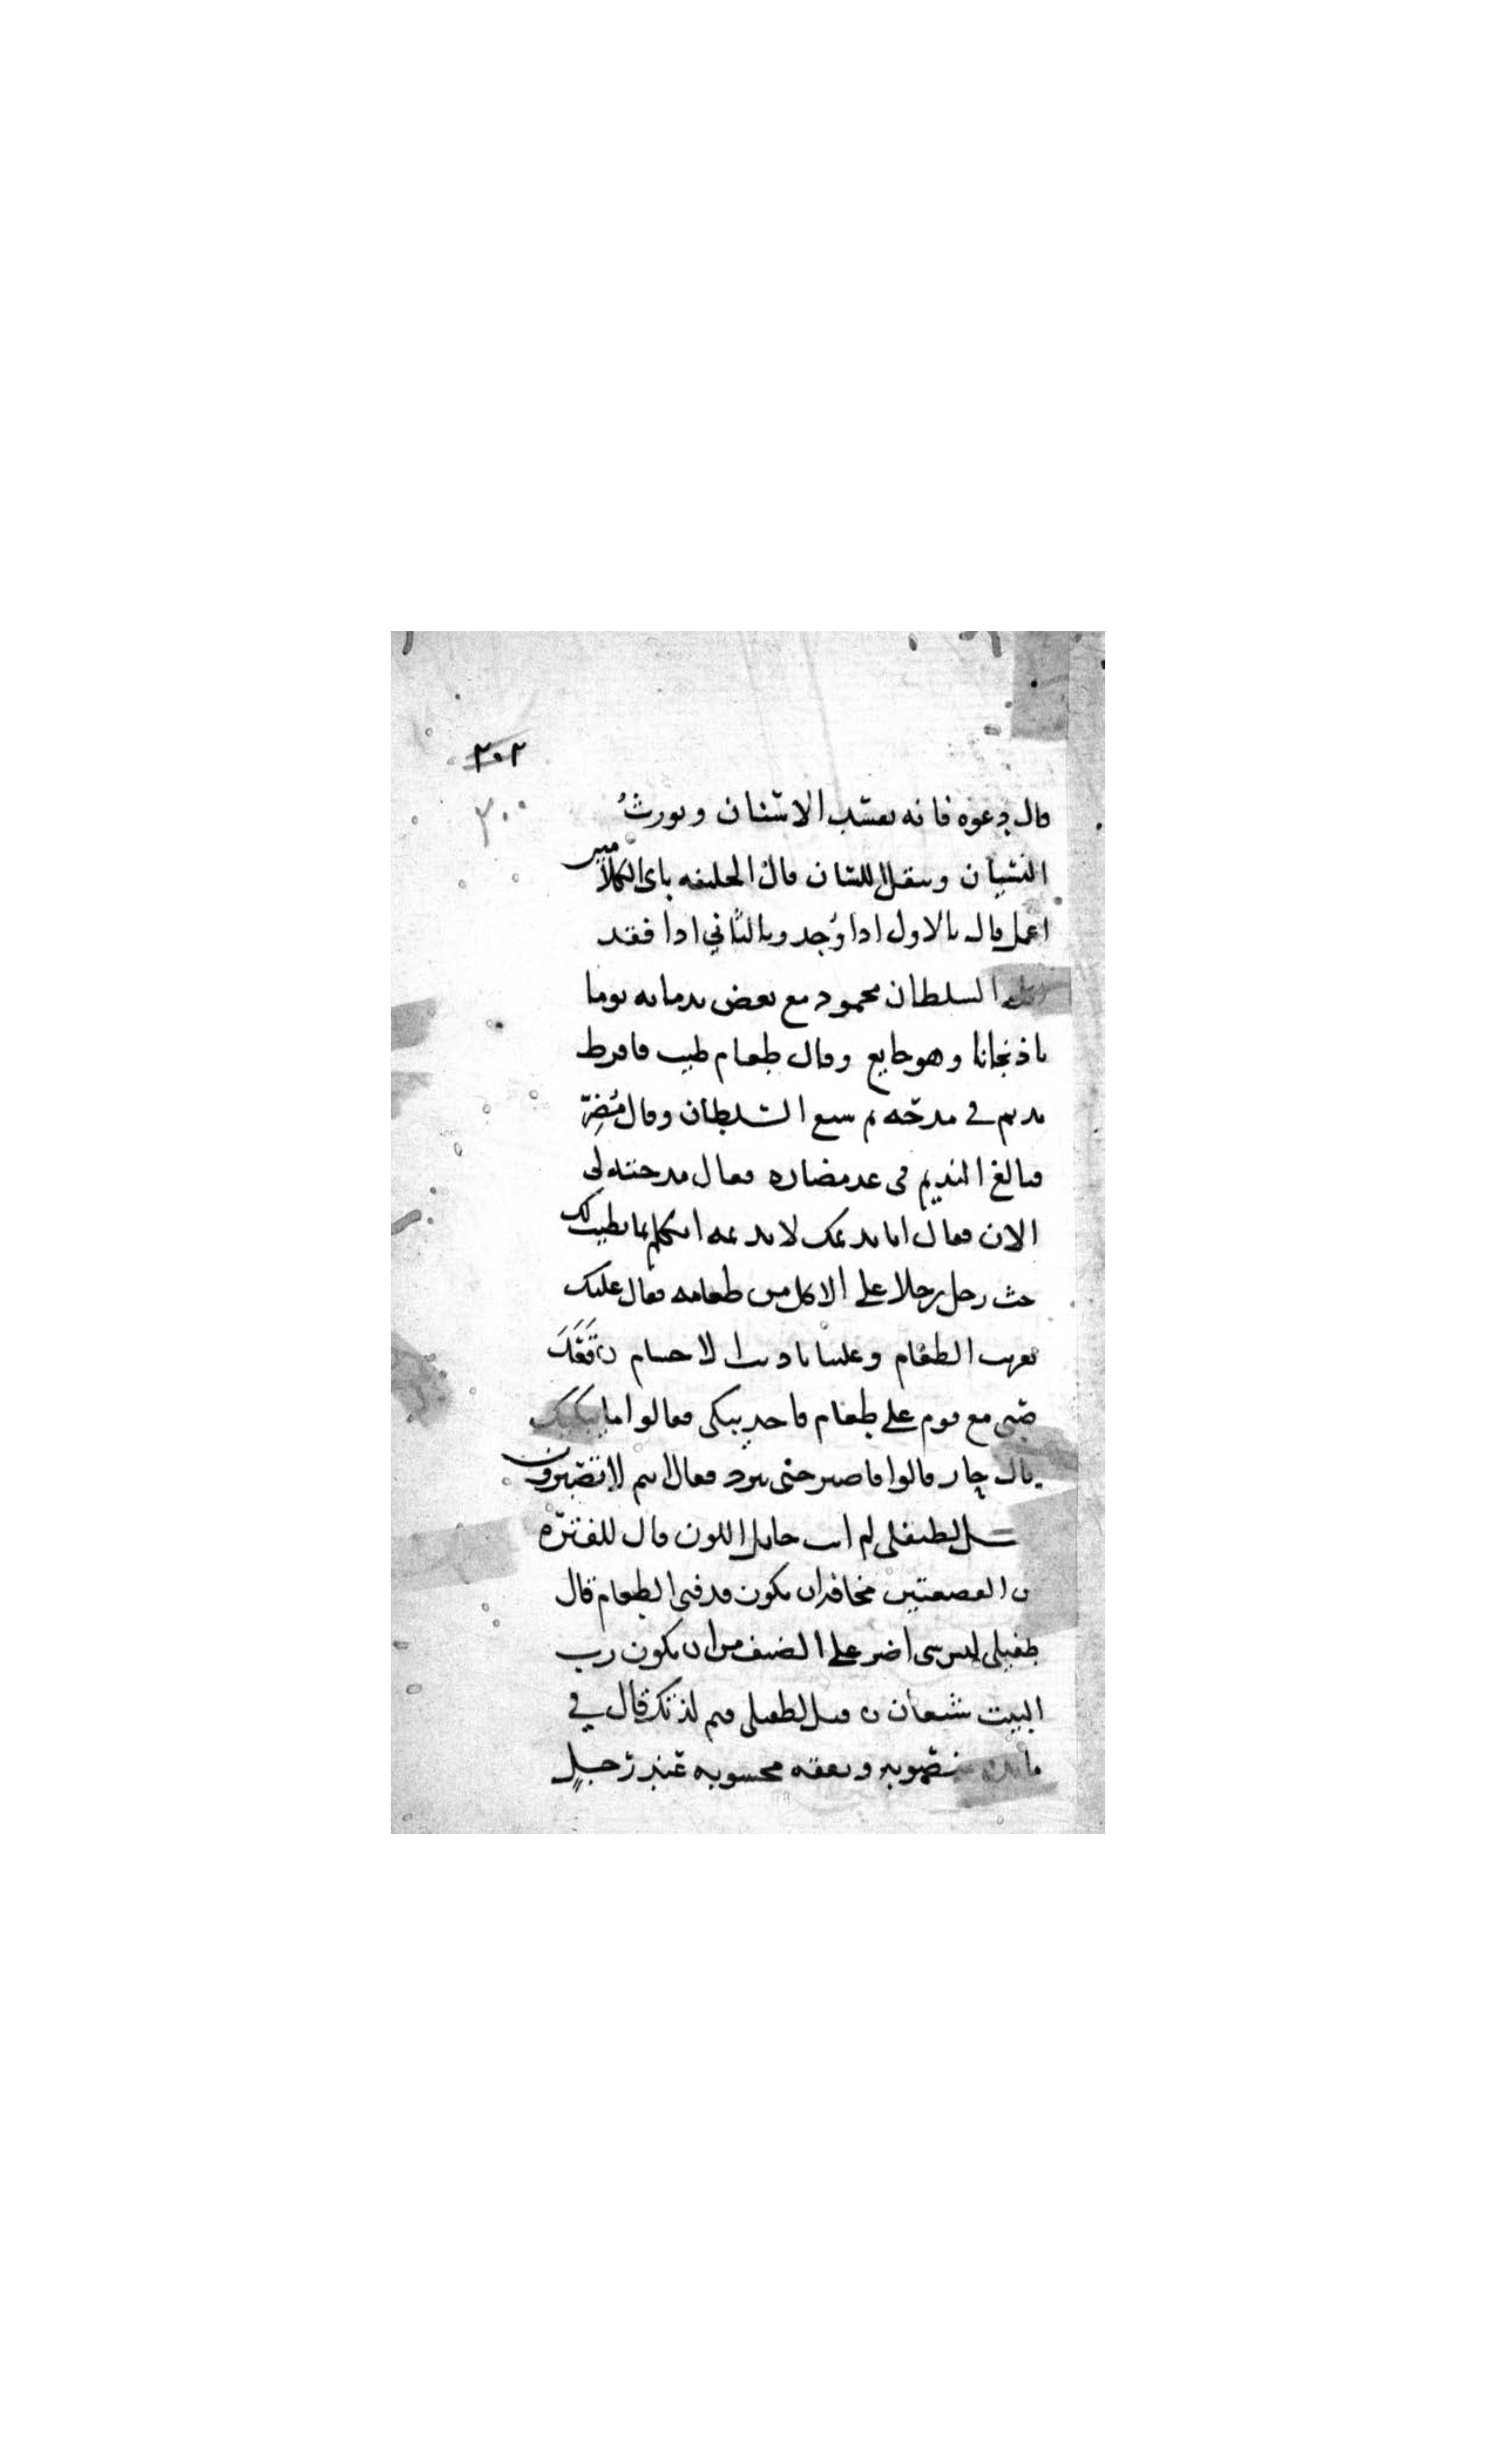 ٢٠٢
٢٠٠
قال دعوه فانه يعسب الاسنان ويورث
النسيان ويثقل اللسان قال الخليفه باى الكلامين
اعمل قال بالاول اذا وجد وبالثاني اذا فقد
السلطان محمود مع بعض ندمايه يوما
باذنجانا وهو جايع وقال طعام طيب فافرط
نديم في مدحه ثم شبع السلطان وقال مضر
فبالغ النديم في عد مضاره فقال مدحته لي
الان فقال انا نديمك لا نديمه اتكلم بما يطيب لك
حث رجل رجلا على الاكل من طعامه فقال عليك
تقريب الطعام وعلينا تاديب الاجسام ن قعد
صبى مع قوم على طعام فاخذ يبكى فقالوا ما يبكيك
قال حار قالوا فاصبر حتى يبرد فقال انتم لا تصبرون
قيل لطفيلى لم انت حايل اللون قال للفترة
بين القصعتين مخافة ان يكون قد فنى الطعام قال
طفيلى ليس شى اضر على الضيف من ان يكون رب
البيت شبعان ن قيل لطفيلى فيم لذتك قال في
مائدة منصوبه ونفقه محسوبه عند رجل